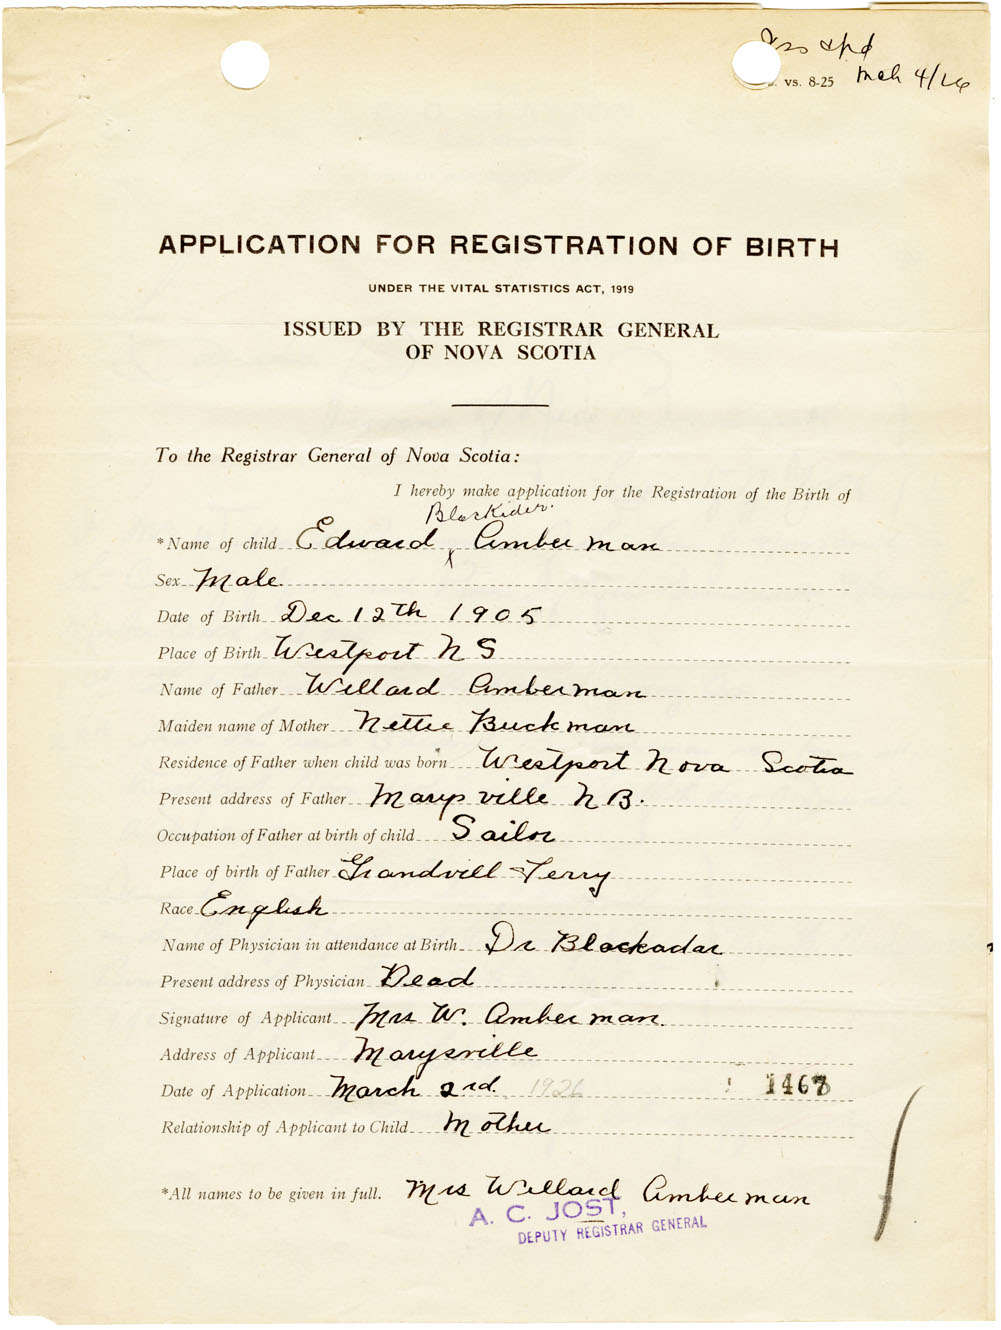 vs. 8-25 Mch 4/26
APPLICATION FOR REGISTRATION OF BIRTH
UNDER THE VITAL STATISTICS ACT, 1919
ISSUED BY THE REGISTRAR GENERAL
OF NOVA SCOTIA
To the Registrar General of Nova Scotia:
I hereby make application for the Registration of the Birth of
Blackider
*Name of child Edward Amberman
Sex Male
Date of Birth Dec 12th 1905
Place of Birth Westport N S
Name of Father Willard Amberman
Maiden name of Mother Nettie Buckman
Residence of Father when child was born Westport Nova Scotia
Present address of Father Marysville N B.
Occupation of Father at birth of child Sailor
Place of birth of Father Grandvill Ferry
Race English
Name of Physician in attendance at Birth Dr Blackadar
Present address of Physician Dead
Signature of Applicant Mrs W. Amberman
Address of Applicant Marysville
Date of Application March 2nd. 1926 1467
Relationship of Applicant to Child Mother
*All names to be given in full. Mrs Willard Amberman
A. C. JOST,
DEPUTY REGISTRAR GENERAL